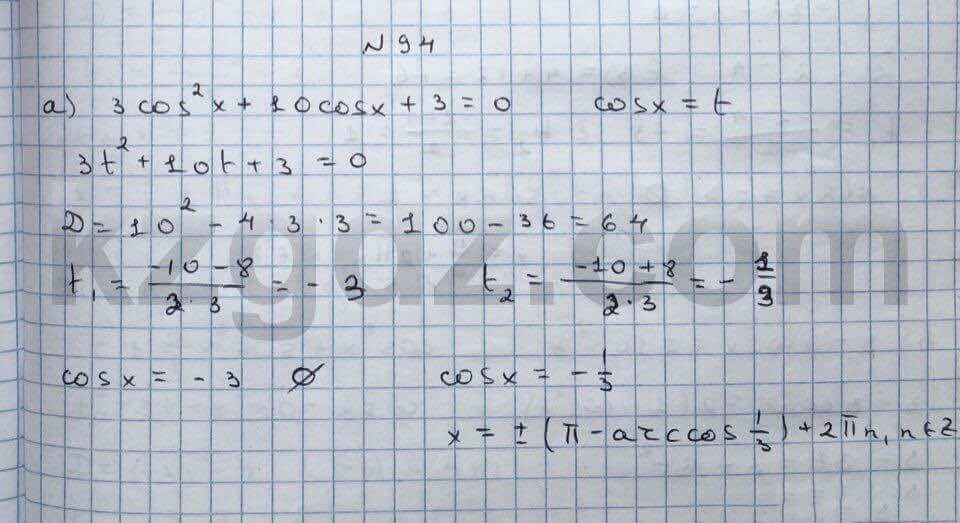 N 94
а) 3 cos²x + 10cosx + 3 = 0 cosx = t
3t² + 10t + 3 = 0
D = 10² - 4 · 3 · 3 = 100 - 36 = 64
t₁ = (-10 - 8)/(2 · 3) = - 3 t₂ = (-10 + 8)/(2 · 3) = - 1/3
cosx = - 3 ∅ cosx = - 1/3
x = ± (π - arccos 1/3) + 2πn, n ∈ Z
kzgdz.com